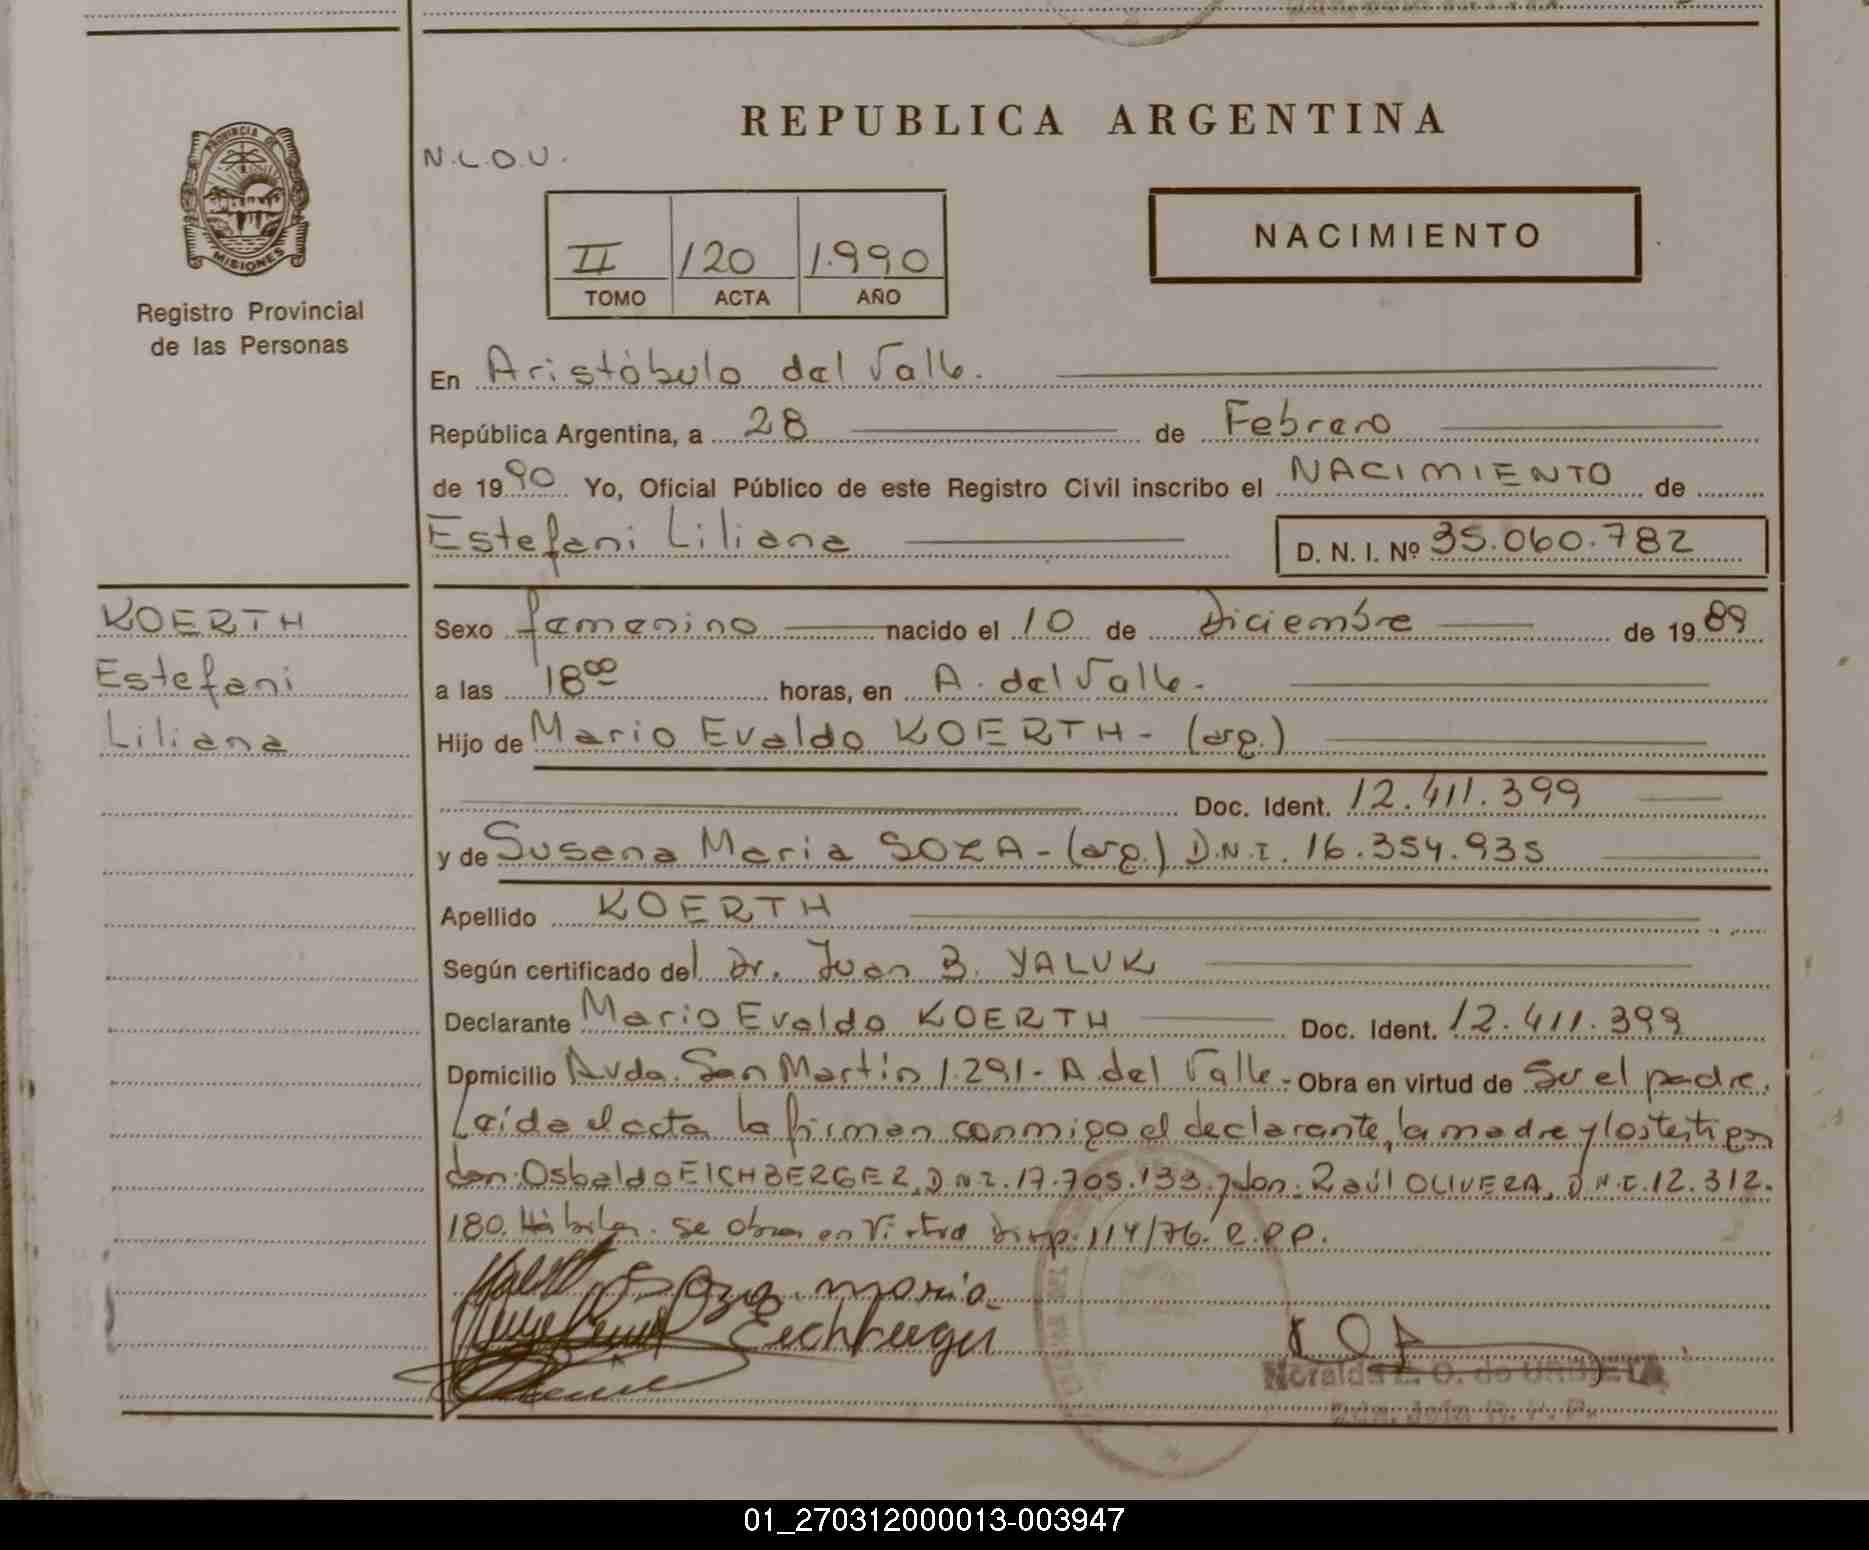 REPUBLICA ARGENTINA
PROVINCIA DE
MISIONES
Registro Provincial
de las Personas
N.L.O.U.
II 120 1.990
TOMO ACTA AÑO
NACIMIENTO
En Aristóbulo del Valle.
República Argentina, a 28 de Febrero
de 1990 Yo, Oficial Público de este Registro Civil inscribo el NACIMIENTO de
Estefani Liliana D. N. I. Nº 35.060.782
KOERTH
Estefani
Liliana
Sexo femenino nacido el 10 de Diciembre de 1989
a las 18⁰⁰ horas, en A. del Valle.
Hijo de Mario Evaldo KOERTH - (arg.)
Doc. Ident. 12.411.399
y de Susana Maria SOZA - (arg.) D.N.I. 16.354.935
Apellido KOERTH
Según certificado del Dr. Juan B. YALUK
Declarante Mario Evaldo KOERTH Doc. Ident. 12.411.399
Domicilio Avda. San Martín 1.291 - A. del Valle - Obra en virtud de Ser el padre.
Leída el acta la firman conmigo el declarante, la madre y los testigos
don: Osbaldo EICHBERGER, D.N.I. 17.705.133 y don: Raúl OLIVERA, D.N.I. 12.312.
180. Hábiles. Se obra en Virtud Disp. 114/76. R.P.P.
Soza maria
Eichberger
Noralda E. O. de
R. P. P.
01_270312000013-003947